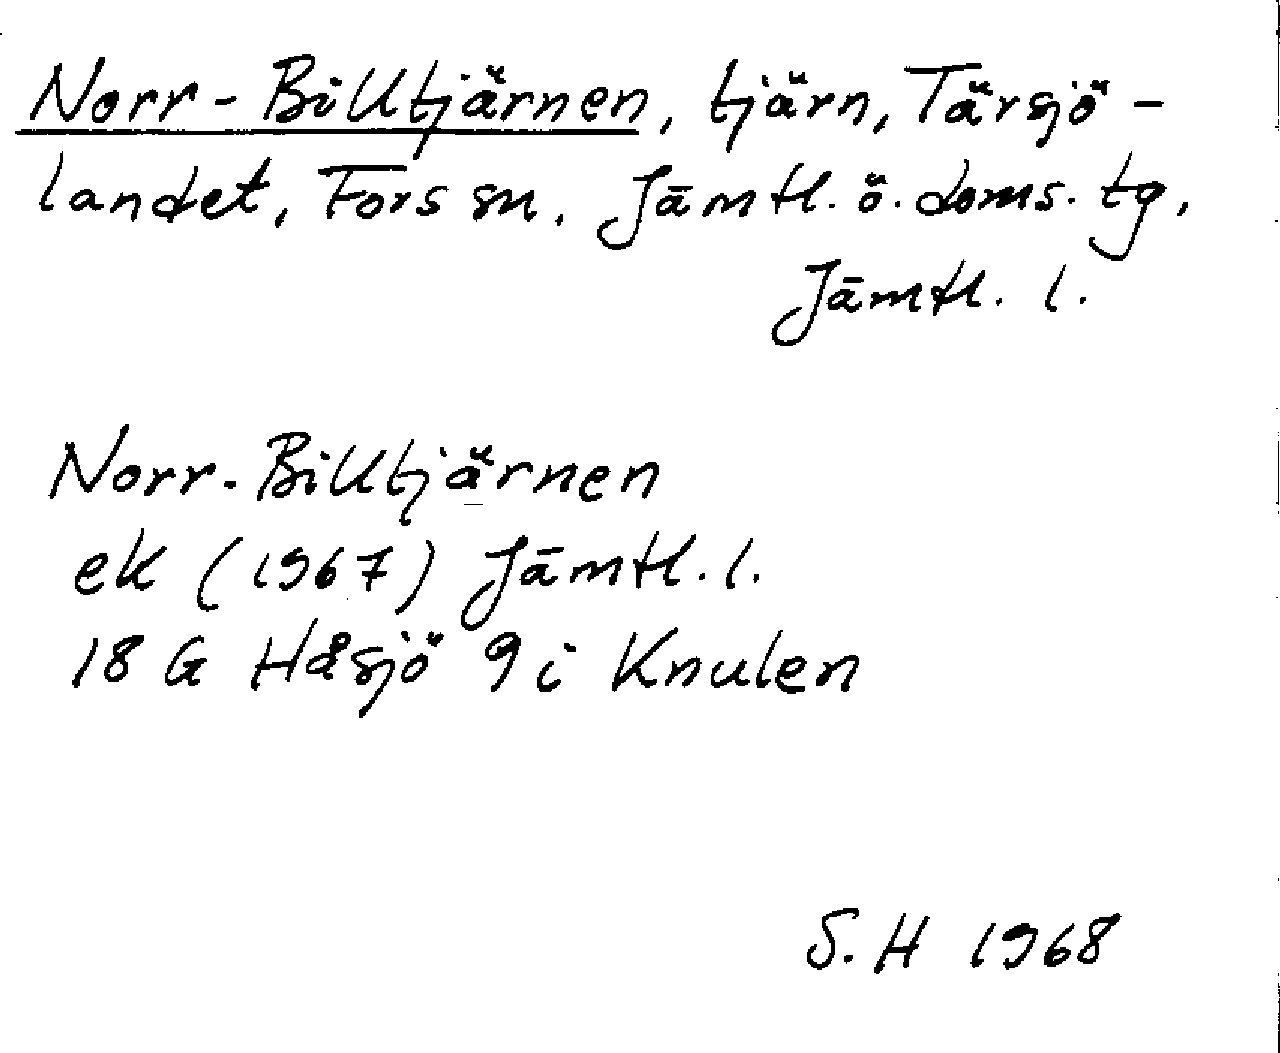 Norr-Billtjärnen, tjärn, Tärsjö-
landet, Fors sn. Jämtl. ö. doms. tg,
Jämtl. l.
Norr-Billtjärnen
ek (1967) Jämtl. l.
18 G Håsjö 9 i Knulen
S.H 1968